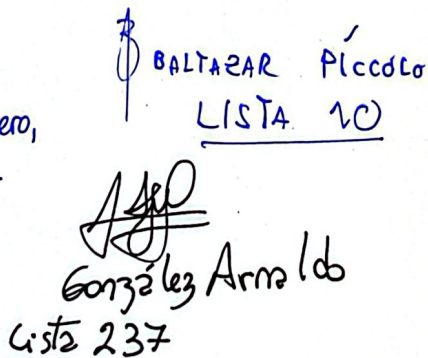 BALTAZAR PÍCCOLO
LISTA 10
ero,
González Arnaldo
Lista 237